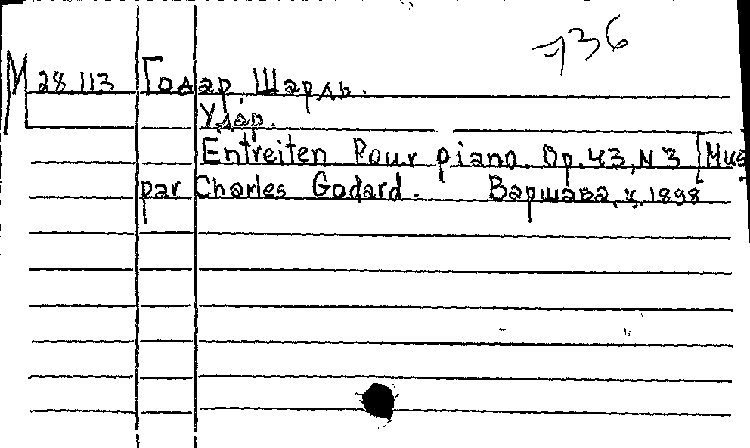 736
М 28.113 Годар, Шарль.
Удар.
Entreiten Pour piano. Op. 43, N 3 [Миз
par Charles Godard. Варшава, ц. 1898